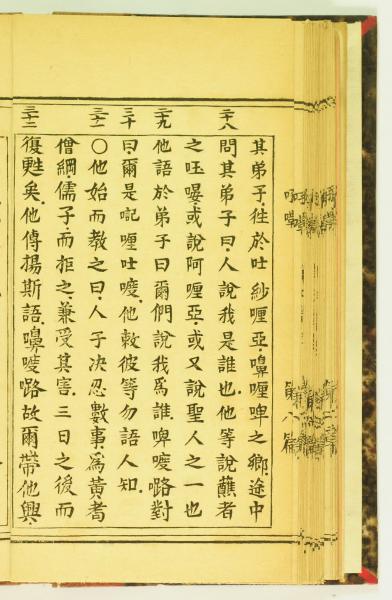 其弟子.徃於吐紗喱亞.嚊喱啤之鄉.途中
二十八
問其弟子曰.人說我是誰也.他等說蘸者
之或說阿喱亞.或又說聖人之一也
二十九
他語於弟子曰爾們說我為誰.啤喥對
三十
曰.爾是喱吐喥.他敕彼等勿語人知.
三十一
〇他始而教之曰.人子决忍數事.為黃耇
僧綱儒子.而拒之.兼受其害.三日之後而
三十二
復甦矣.他傳揚斯語.嚊喥故爾帶他興.
第八篇